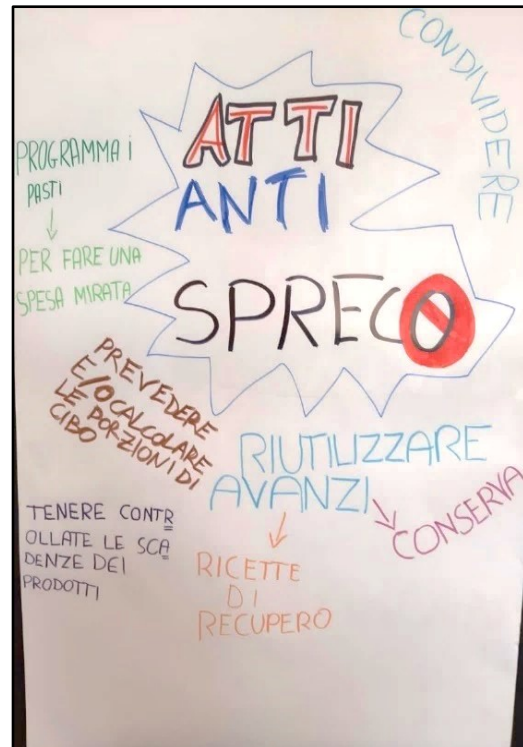 CONDIVIDERE
ATTI
ANTI
SPRECO
PROGRAMMA i
PASTI
PER FARE UNA
SPESA MIRATA
PREVEDERE
E/O CALCOLARE
LE PORZIONI DI
CIBO
RIUTILIZZARE
AVANZI
CONSERVA
TENERE CONTR
OLLATE LE SCA
DENZE DEI
PRODOTTI
RICETTE
DI
RECUPERO